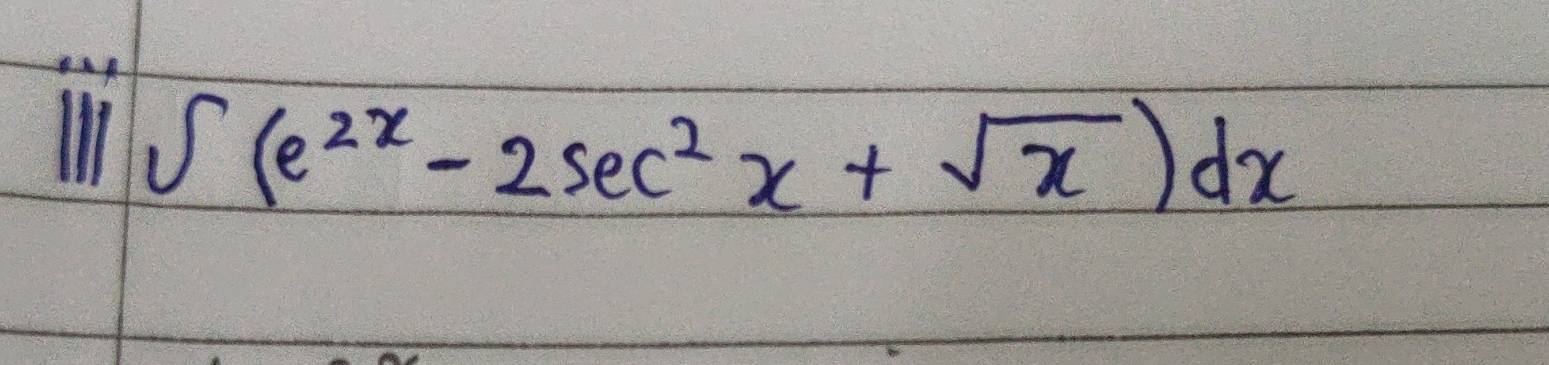 iii ∫ (e^{2x} - 2 sec² x + √x) dx